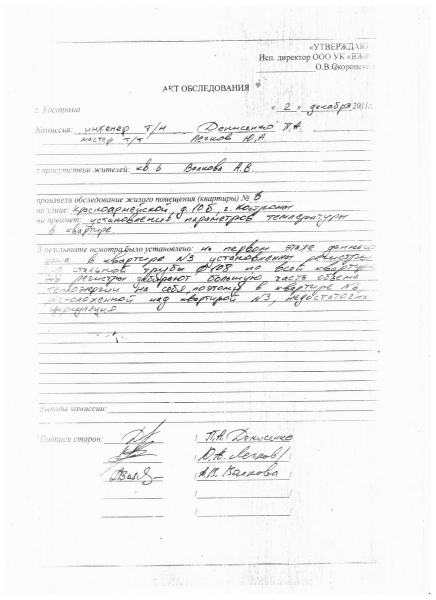 «УТВЕРЖДАЮ
Исп. директор ООО УК «ВЖ
О.В.Скоропе
АКТ ОБСЛЕДОВАНИЯ
г. Кострома « 2 » декабря 2011г.
Комиссия: инженер т/н Денисенко П.А.
мастер т/т Легков Ю.А.
в присутствии жителей: кв. 6 Волкова А.В.
произвели обследование жилого помещения (квартиры) № 6
на улице: Красноармейской д. 10Б, г. Костромы
на предмет: установления параметров температуры
в квартире
В результате осмотра было установлено: на первом этаже данного
дома в квартире №3 установлены регистры
стальной трубы Ф108 по всей квартире
регистры забирают большую часть объема
теплоэнергии на себя, поэтому в квартире №6
расположенной над квартирой №3, недостаточна
циркуляция
Выводы комиссии:
Подписи сторон: / П.А. Денисенко
/ Ю.А. Легков /
/ А.В. Волкова